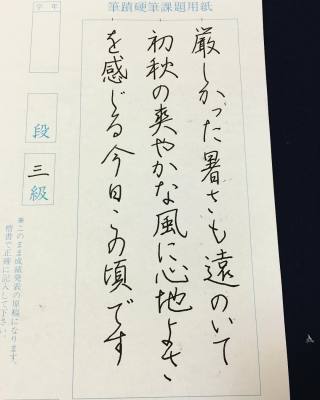 筆蹟硬筆課題用紙
厳しかった暑さも遠のいて
初秋の爽やかな風に心地よさ
を感じる今日この頃です
学年
段
三級
※このまま成績発表の原稿になります。
楷書で正確に記入して下さい。